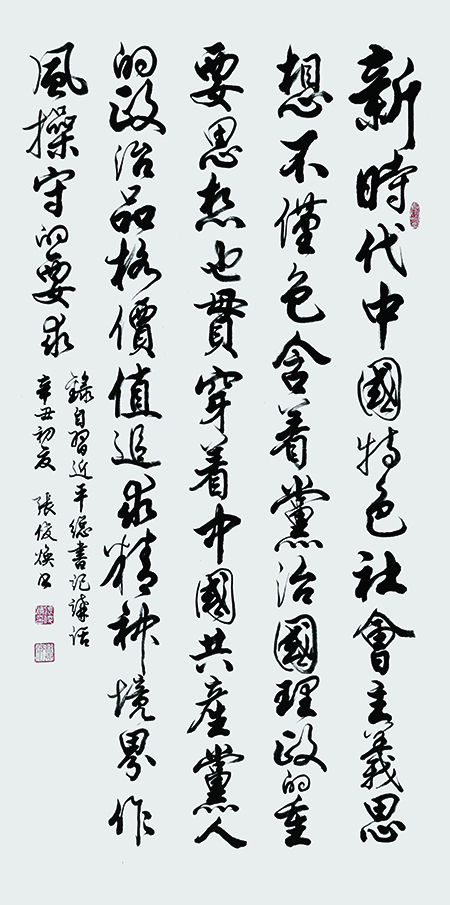 新時代中國特色社會主義思
想不僅包含着黨治國理政的重
要思想也貫穿着中國共産黨人
的政治品格價值追求精神境界作
風操守的要求
錄自習近平總書記講話
辛丑初夏 張俊煥書